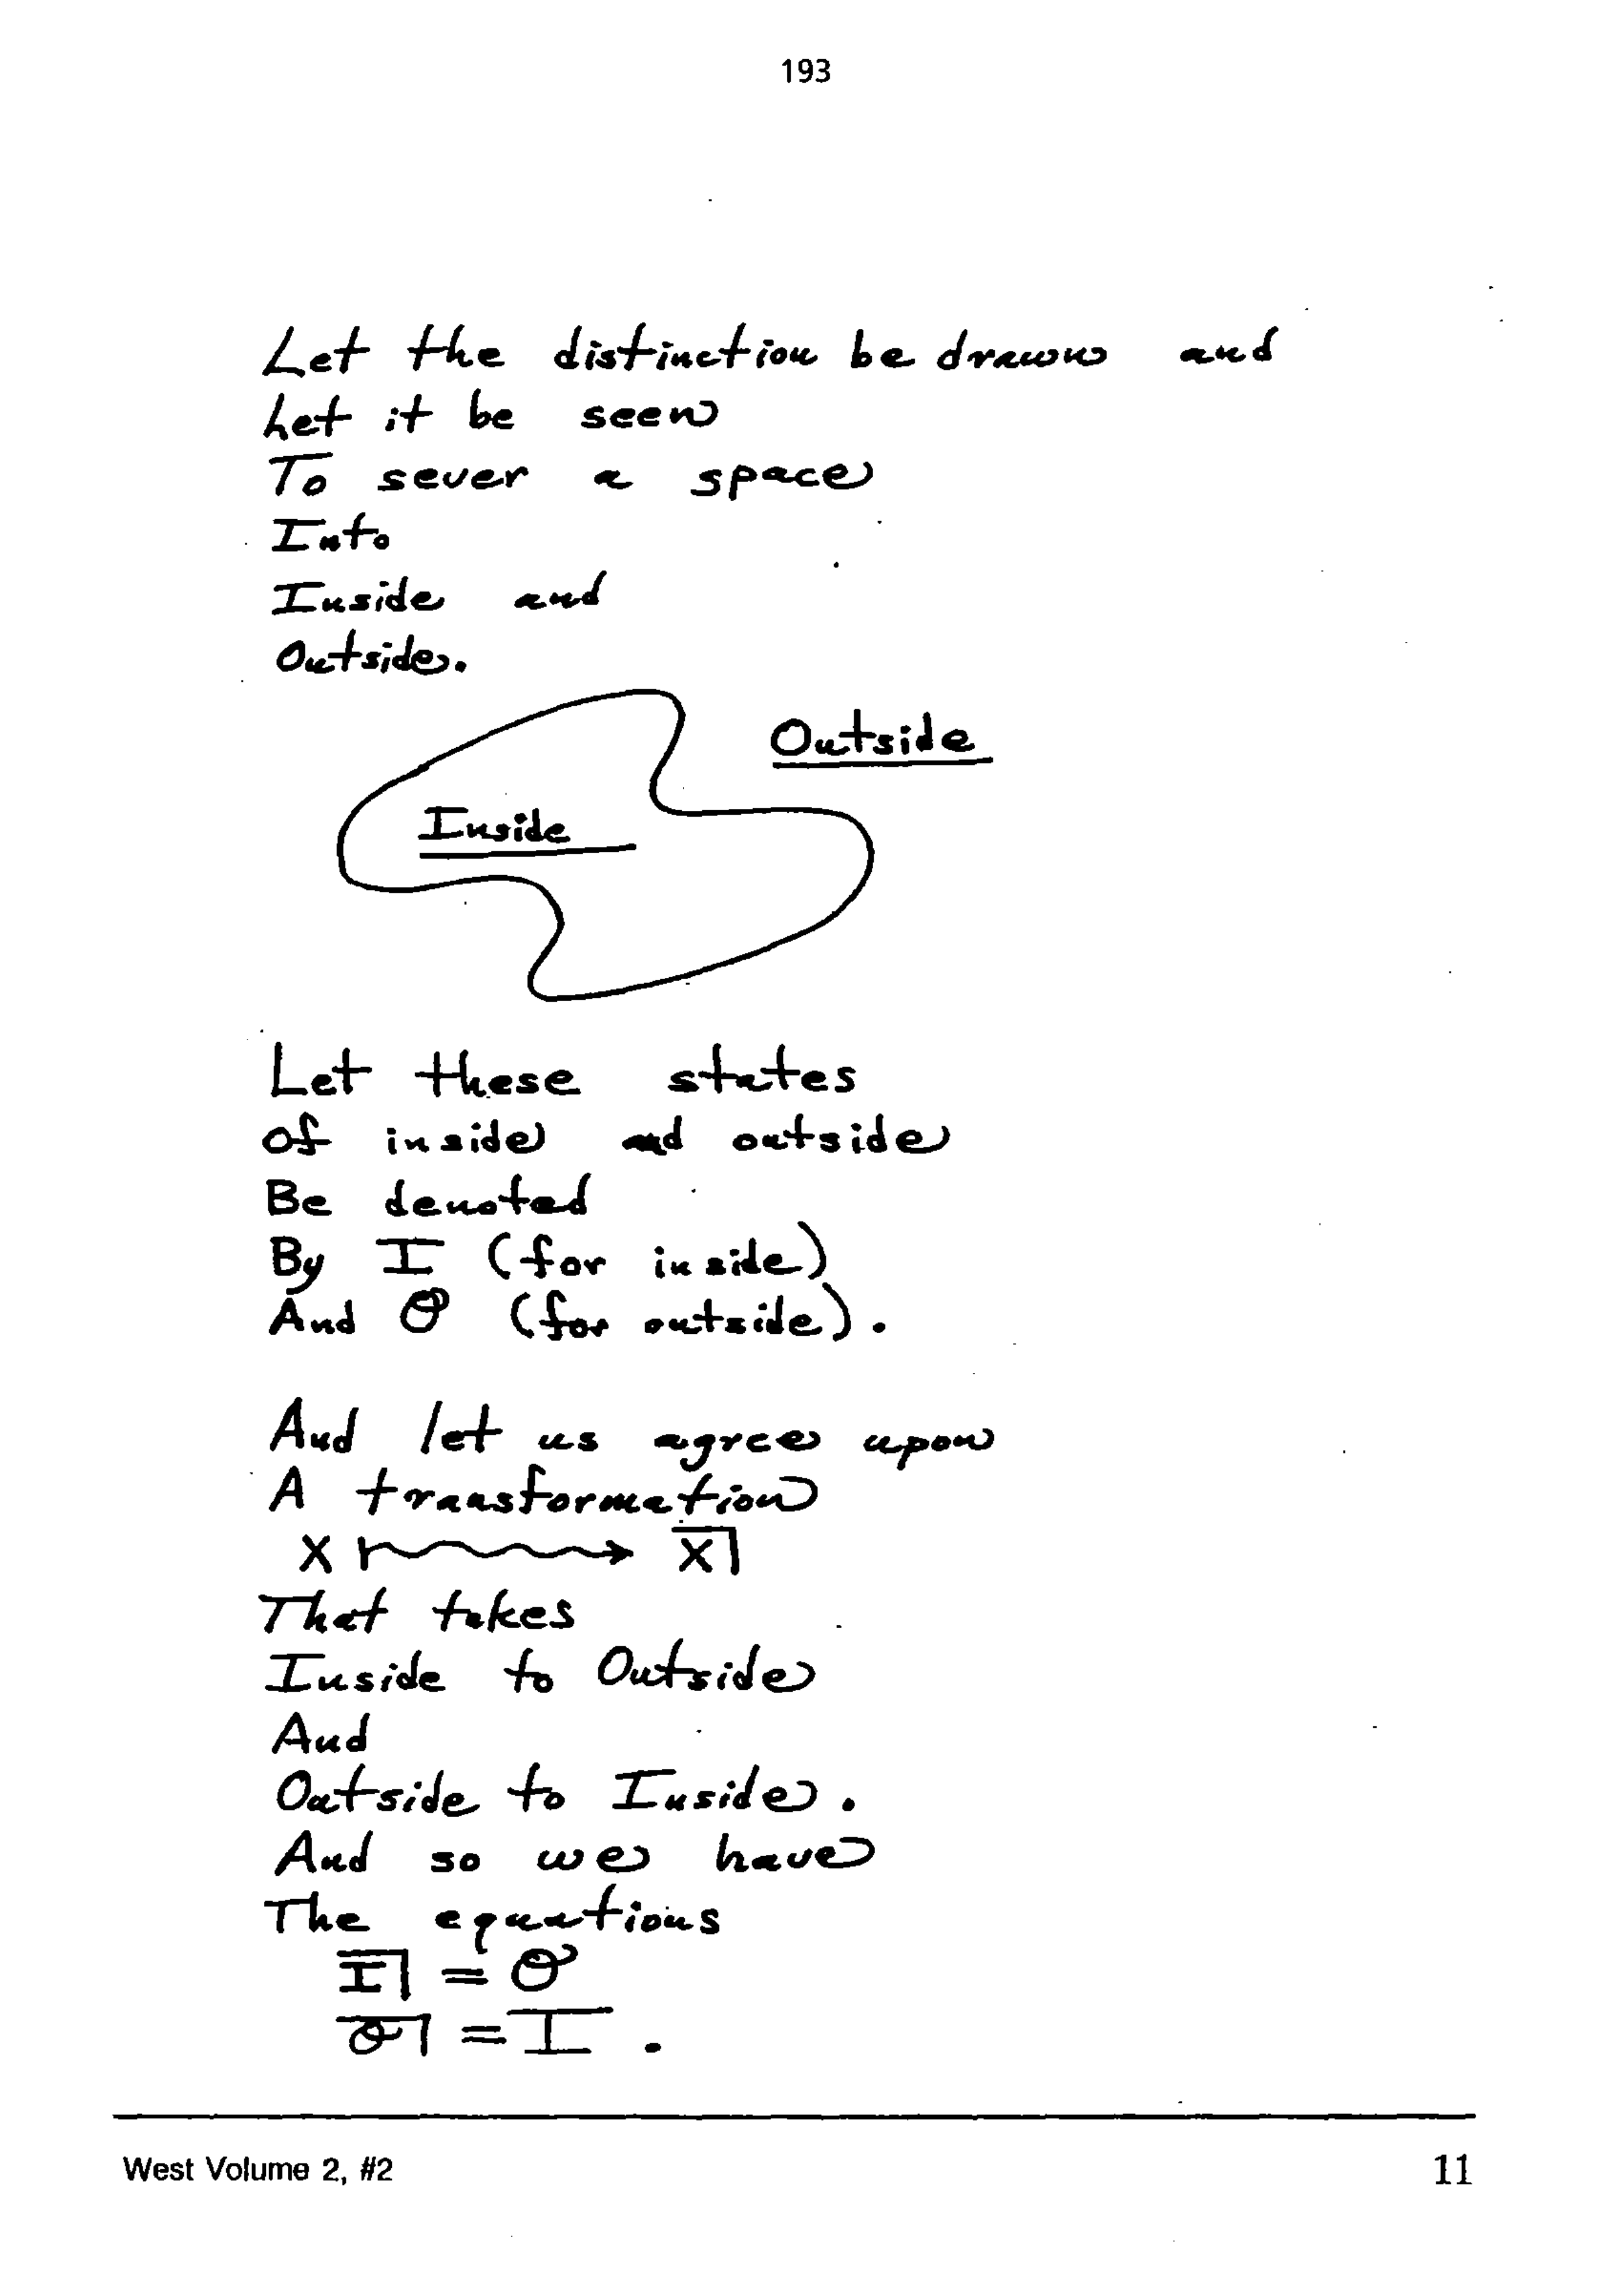 193
Let the distinction be drawn and
Let it be seen
To sever a space
Into
Inside and
Outside.
Outside
Inside
Let these states
Of inside and outside
Be denoted
By I (for inside)
And O (for outside).
And let us agree upon
A transformation
X ⟿ X̅|
That takes
Inside to Outside
And
Outside to Inside.
And so we have
The equations
I̅| = O
O̅| = I .
West Volume 2, #2
11